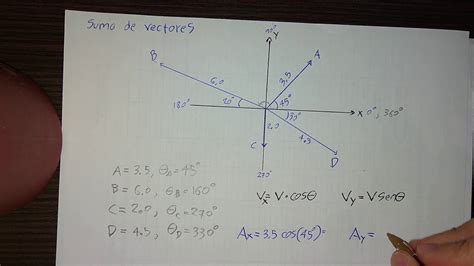 Suma de vectores
90° Y
A
B
6.0
3.5
180°
20°
45°
X 0°, 360°
30°
2.0
4.5
C
D
270°
A = 3.5, θₐ = 45°
B = 6.0, θ_B = 160°
C = 2.0, θ_c = 270°
D = 4.5, θ_D = 330°
Vₓ = V · cosθ
V_y = V senθ
Aₓ = 3.5 cos(45°) =
A_y =